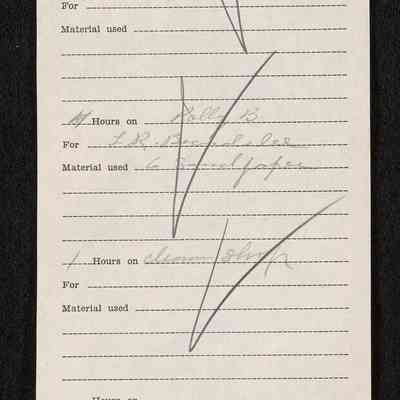 For
Material used
Hours on Polly B
For L. R.
Material used 6 Sandpaper
1 Hours on cleaning shop
For
Material used
Hours on